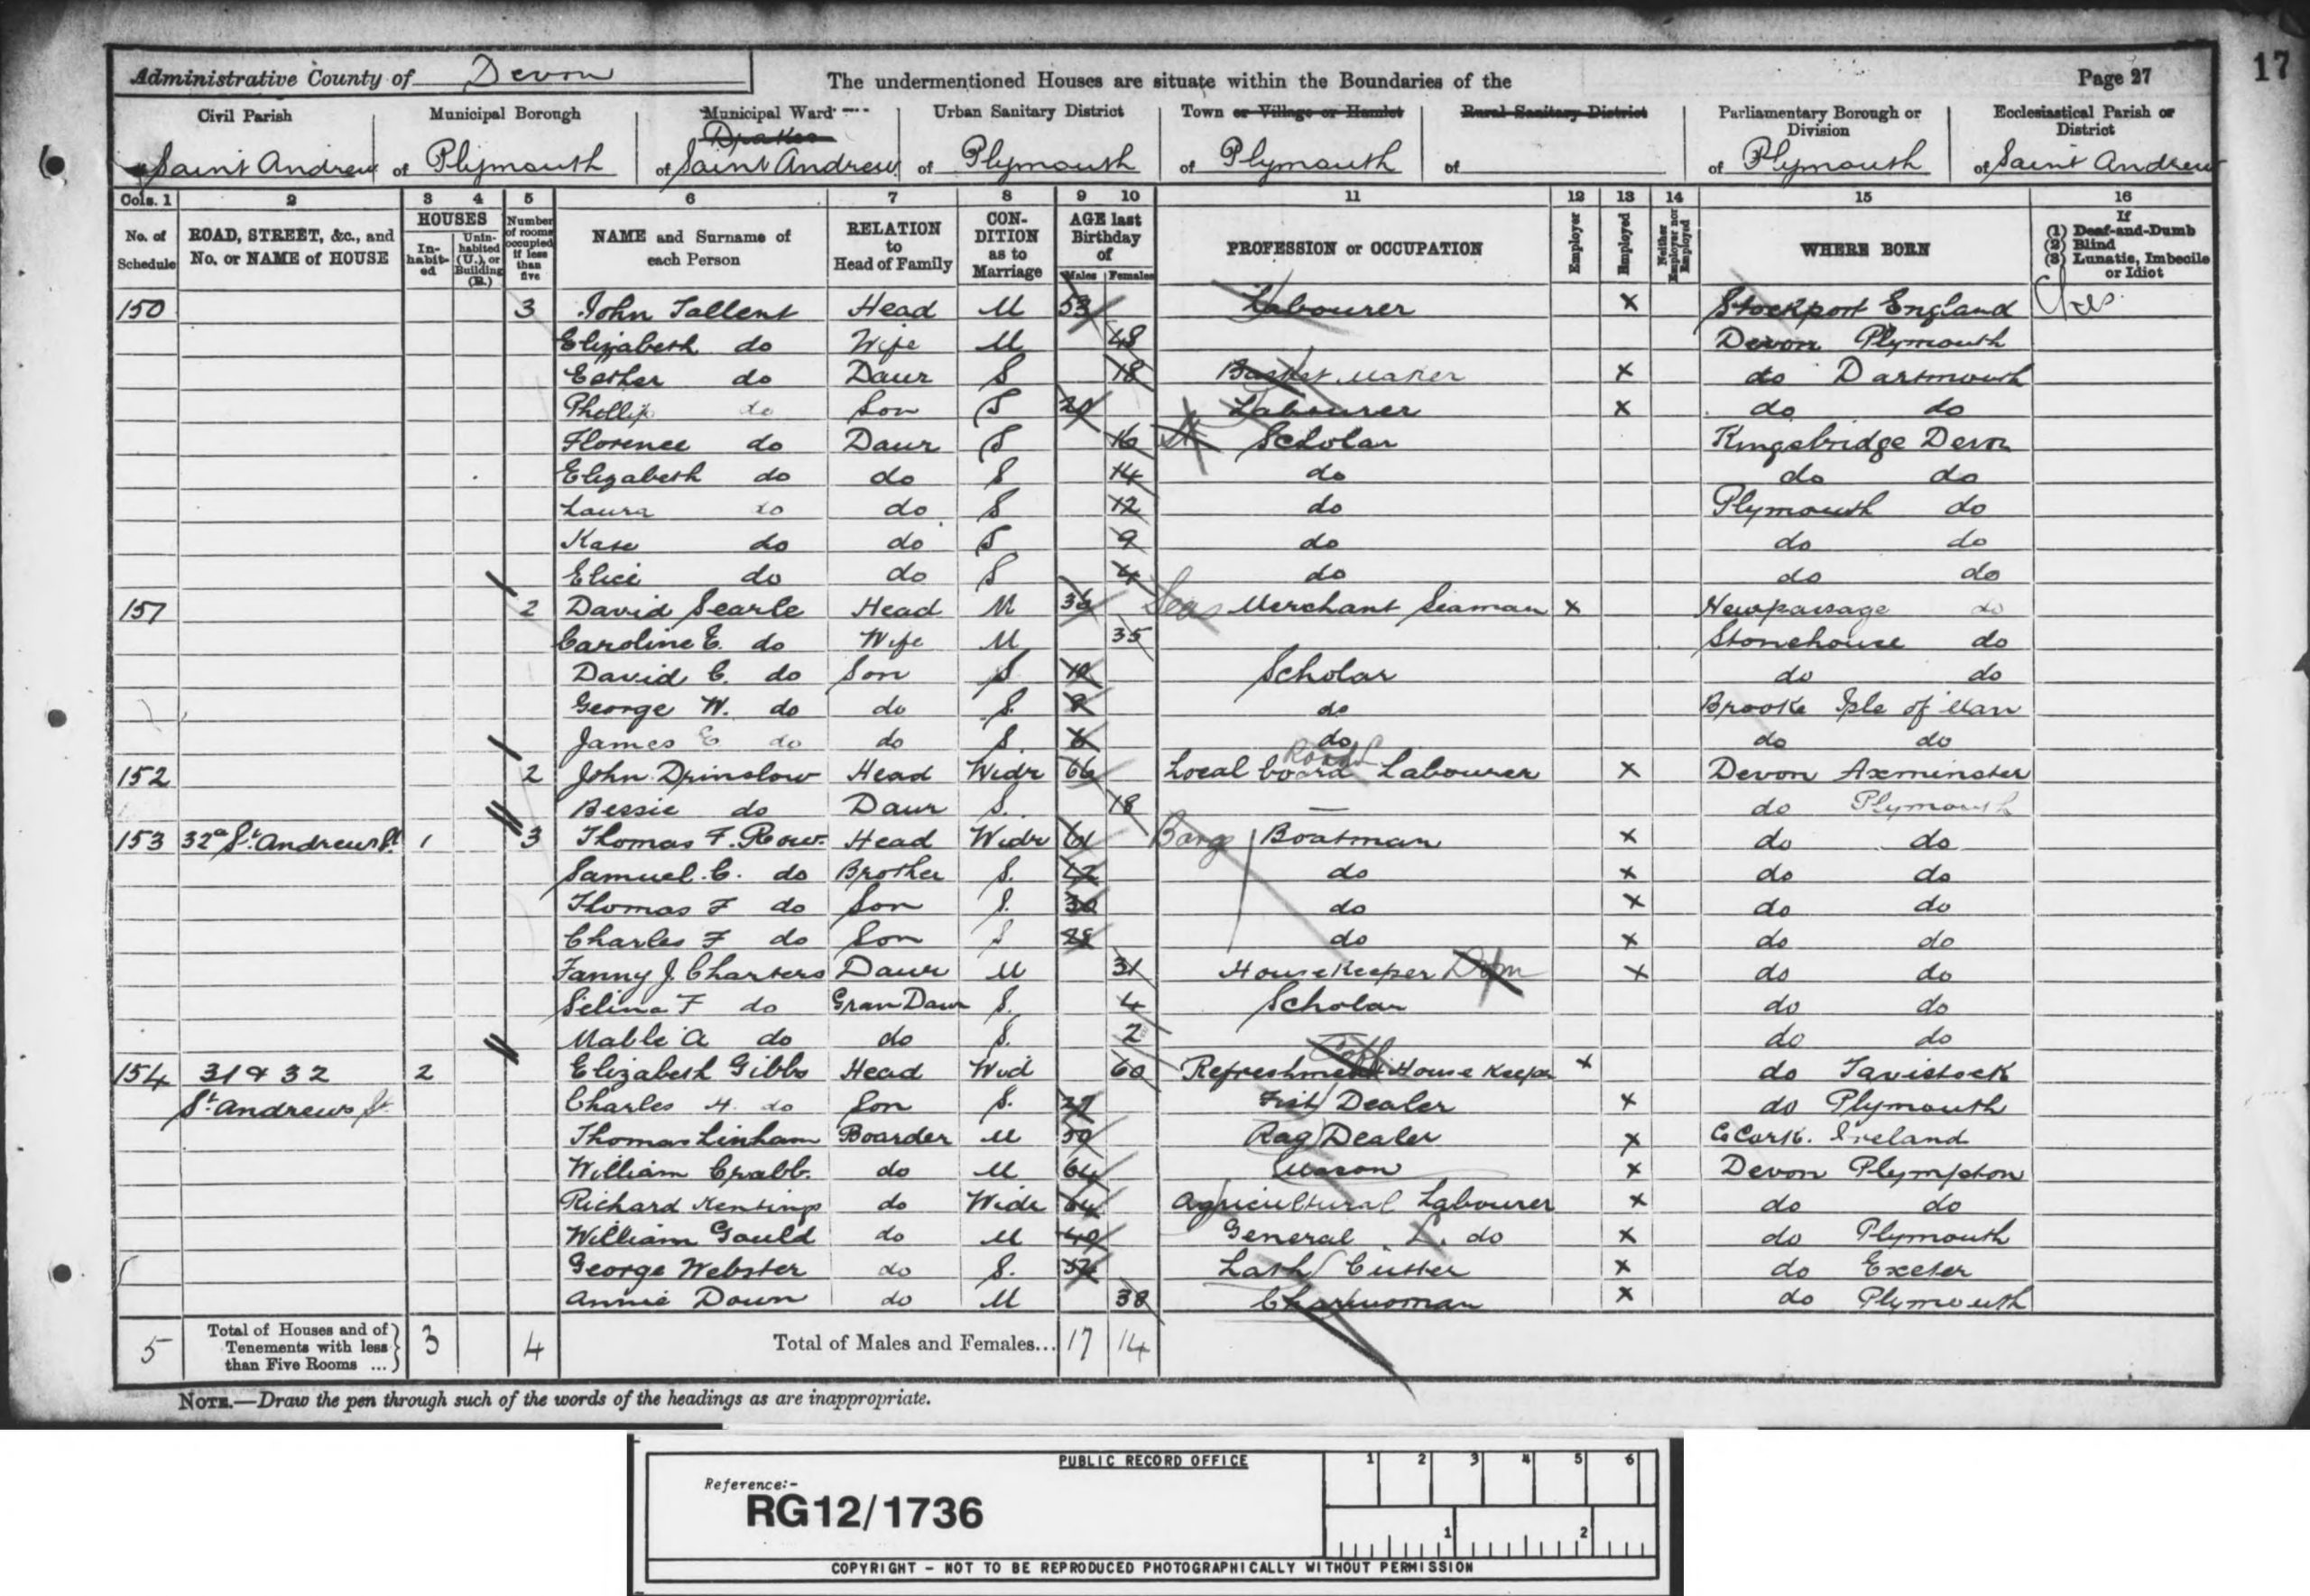 17
Administrative County of Devon
The undermentioned Houses are situate within the Boundaries of the
Page 27
Civil Parish
Municipal Borough
Municipal Ward
Urban Sanitary District
Town or Village or Hamlet
Rural Sanitary District
Parliamentary Borough or Division
Ecclesiastical Parish or District
Drakes
of Saint Andrew of Plymouth of Saint Andrew of Plymouth of Plymouth of of Plymouth of Saint Andrew
Cols. 1 2 3 4 5 6 7 8 9 10 11 12 13 14 15 16
No. of Schedule
ROAD, STREET, &c., and No. or NAME of HOUSE
HOUSES
In-habit-ed
Unin-habited (U.), or Building (B.)
Number of rooms occupied if less than five
NAME and Surname of each Person
RELATION to Head of Family
CON-DITION as to Marriage
AGE last Birthday of
Males Females
PROFESSION or OCCUPATION
Employer
Employed
Neither Employer nor Employed
WHERE BORN
If
(1) Deaf-and-Dumb
(2) Blind
(3) Lunatic, Imbecile or Idiot
150 3 John Tallent Head M 53 Labourer x Stockport England
Elizabeth do Wife M 48 Devon Plymouth
Esther do Daur S 18 Basket Maker x do Dartmouth
Phillip do Son S 20 Labourer x do do
Florence do Daur S 16 Scholar Kingsbridge Devon
Elizabeth do do S 14 do do do
Laura do do S 12 do Plymouth do
Kate do do S 9 do do do
Elici do do S 4 do do do
151 2 David Searle Head M 36 Merchant Seaman x Newpassage do
Caroline E. do Wife M 35 Stonehouse do
David C. do Son S 10 Scholar do do
George W. do do S. 8 do Brooke Isle of Man
James E do do S. 6 do do do
Road
152 2 John Drinslow Head Widr 66 Local board Labourer x Devon Axminster
Bessie do Daur S. 18 — do Plymouth
153 32a St. Andrew St 1 3 Thomas F. Row. Head Widr 61 Barg Boatman x do do
Samuel C. do Brother S. 42 do x do do
Thomas F do Son S. 30 do x do do
Charles F do Son S 28 do x do do
Fanny J. Charters Daur M 31 HouseKeeper Dom x do do
Selina F do Gran Daur S. 4 Scholar do do
Mable A do do S. 2 do do
154 31 & 32 2 Elizabeth Gibbs Head Wid 60 Refreshment House Keeper x do Tavistock
St. Andrews St Charles H. do Son S. 27 Fish Dealer x do Plymouth
Thomas Linham Boarder M 50 Rag Dealer x C Cork. Ireland
William Crabb. do M 64 Mason x Devon Plympton
Richard do Widr 64 Agricultural Labourer x do do
William Gould do M 40 General L. do x do Plymouth
George Webster do S. 52 Lath Cutter x do Exeter
Annie Down do M 38 Charwoman x do Plymouth
5 Total of Houses and of Tenements with less than Five Rooms ... 3 4 Total of Males and Females... 17 14
NOTE.—Draw the pen through such of the words of the headings as are inappropriate.
PUBLIC RECORD OFFICE
1 2 3 4 5 6
Reference:-
RG12/1736
1 2
COPYRIGHT - NOT TO BE REPRODUCED PHOTOGRAPHICALLY WITHOUT PERMISSION